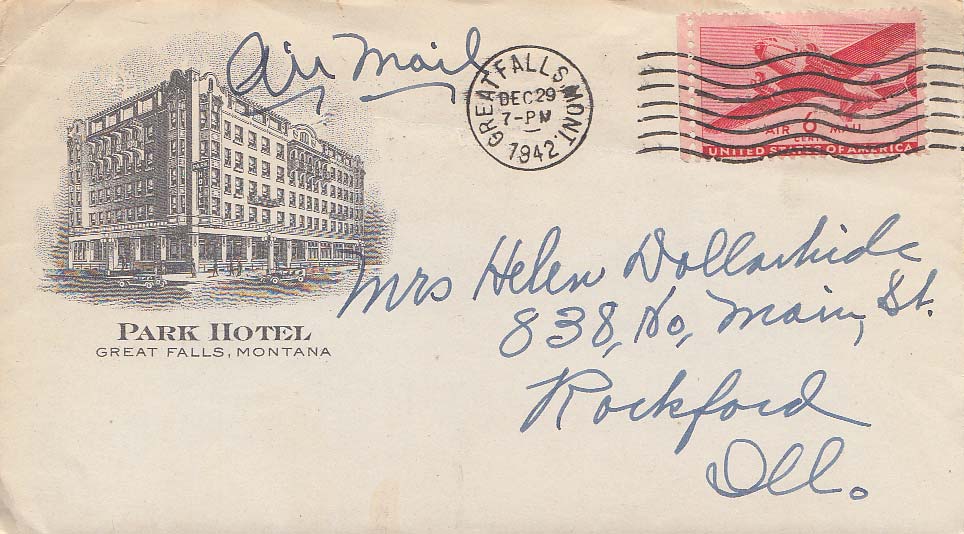 Air Mail
GREAT FALLS, MONT.
DEC 29
7-PM
1942
AIR 6 MAIL
CENTS
UNITED STATES OF AMERICA
PARK HOTEL
GREAT FALLS, MONTANA
Mrs Helen Dollarhide
838, No, Main, St.
Rockford
Ill.